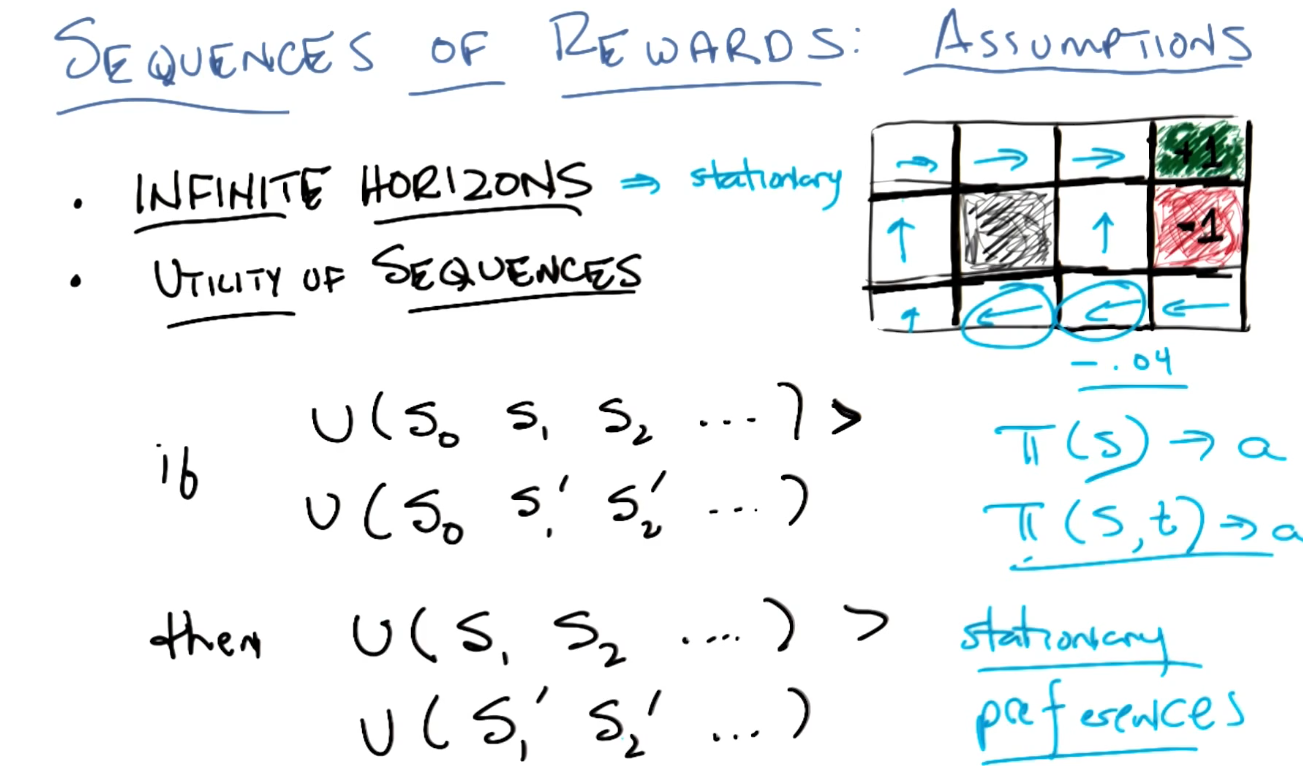 SEQUENCES OF REWARDS: ASSUMPTIONS
• INFINITE HORIZONS ⇒ stationary
• UTILITY OF SEQUENCES
→ → → +1
↑ ↑ -1
↑ ← ← ←
-.04
if U(S₀ S₁ S₂ ...) >
U(S₀ S₁' S₂' ...)
π(s) → a
π(s,t) → a
then U(S₁ S₂ ....) >
U(S₁' S₂' ...)
stationary
preferences